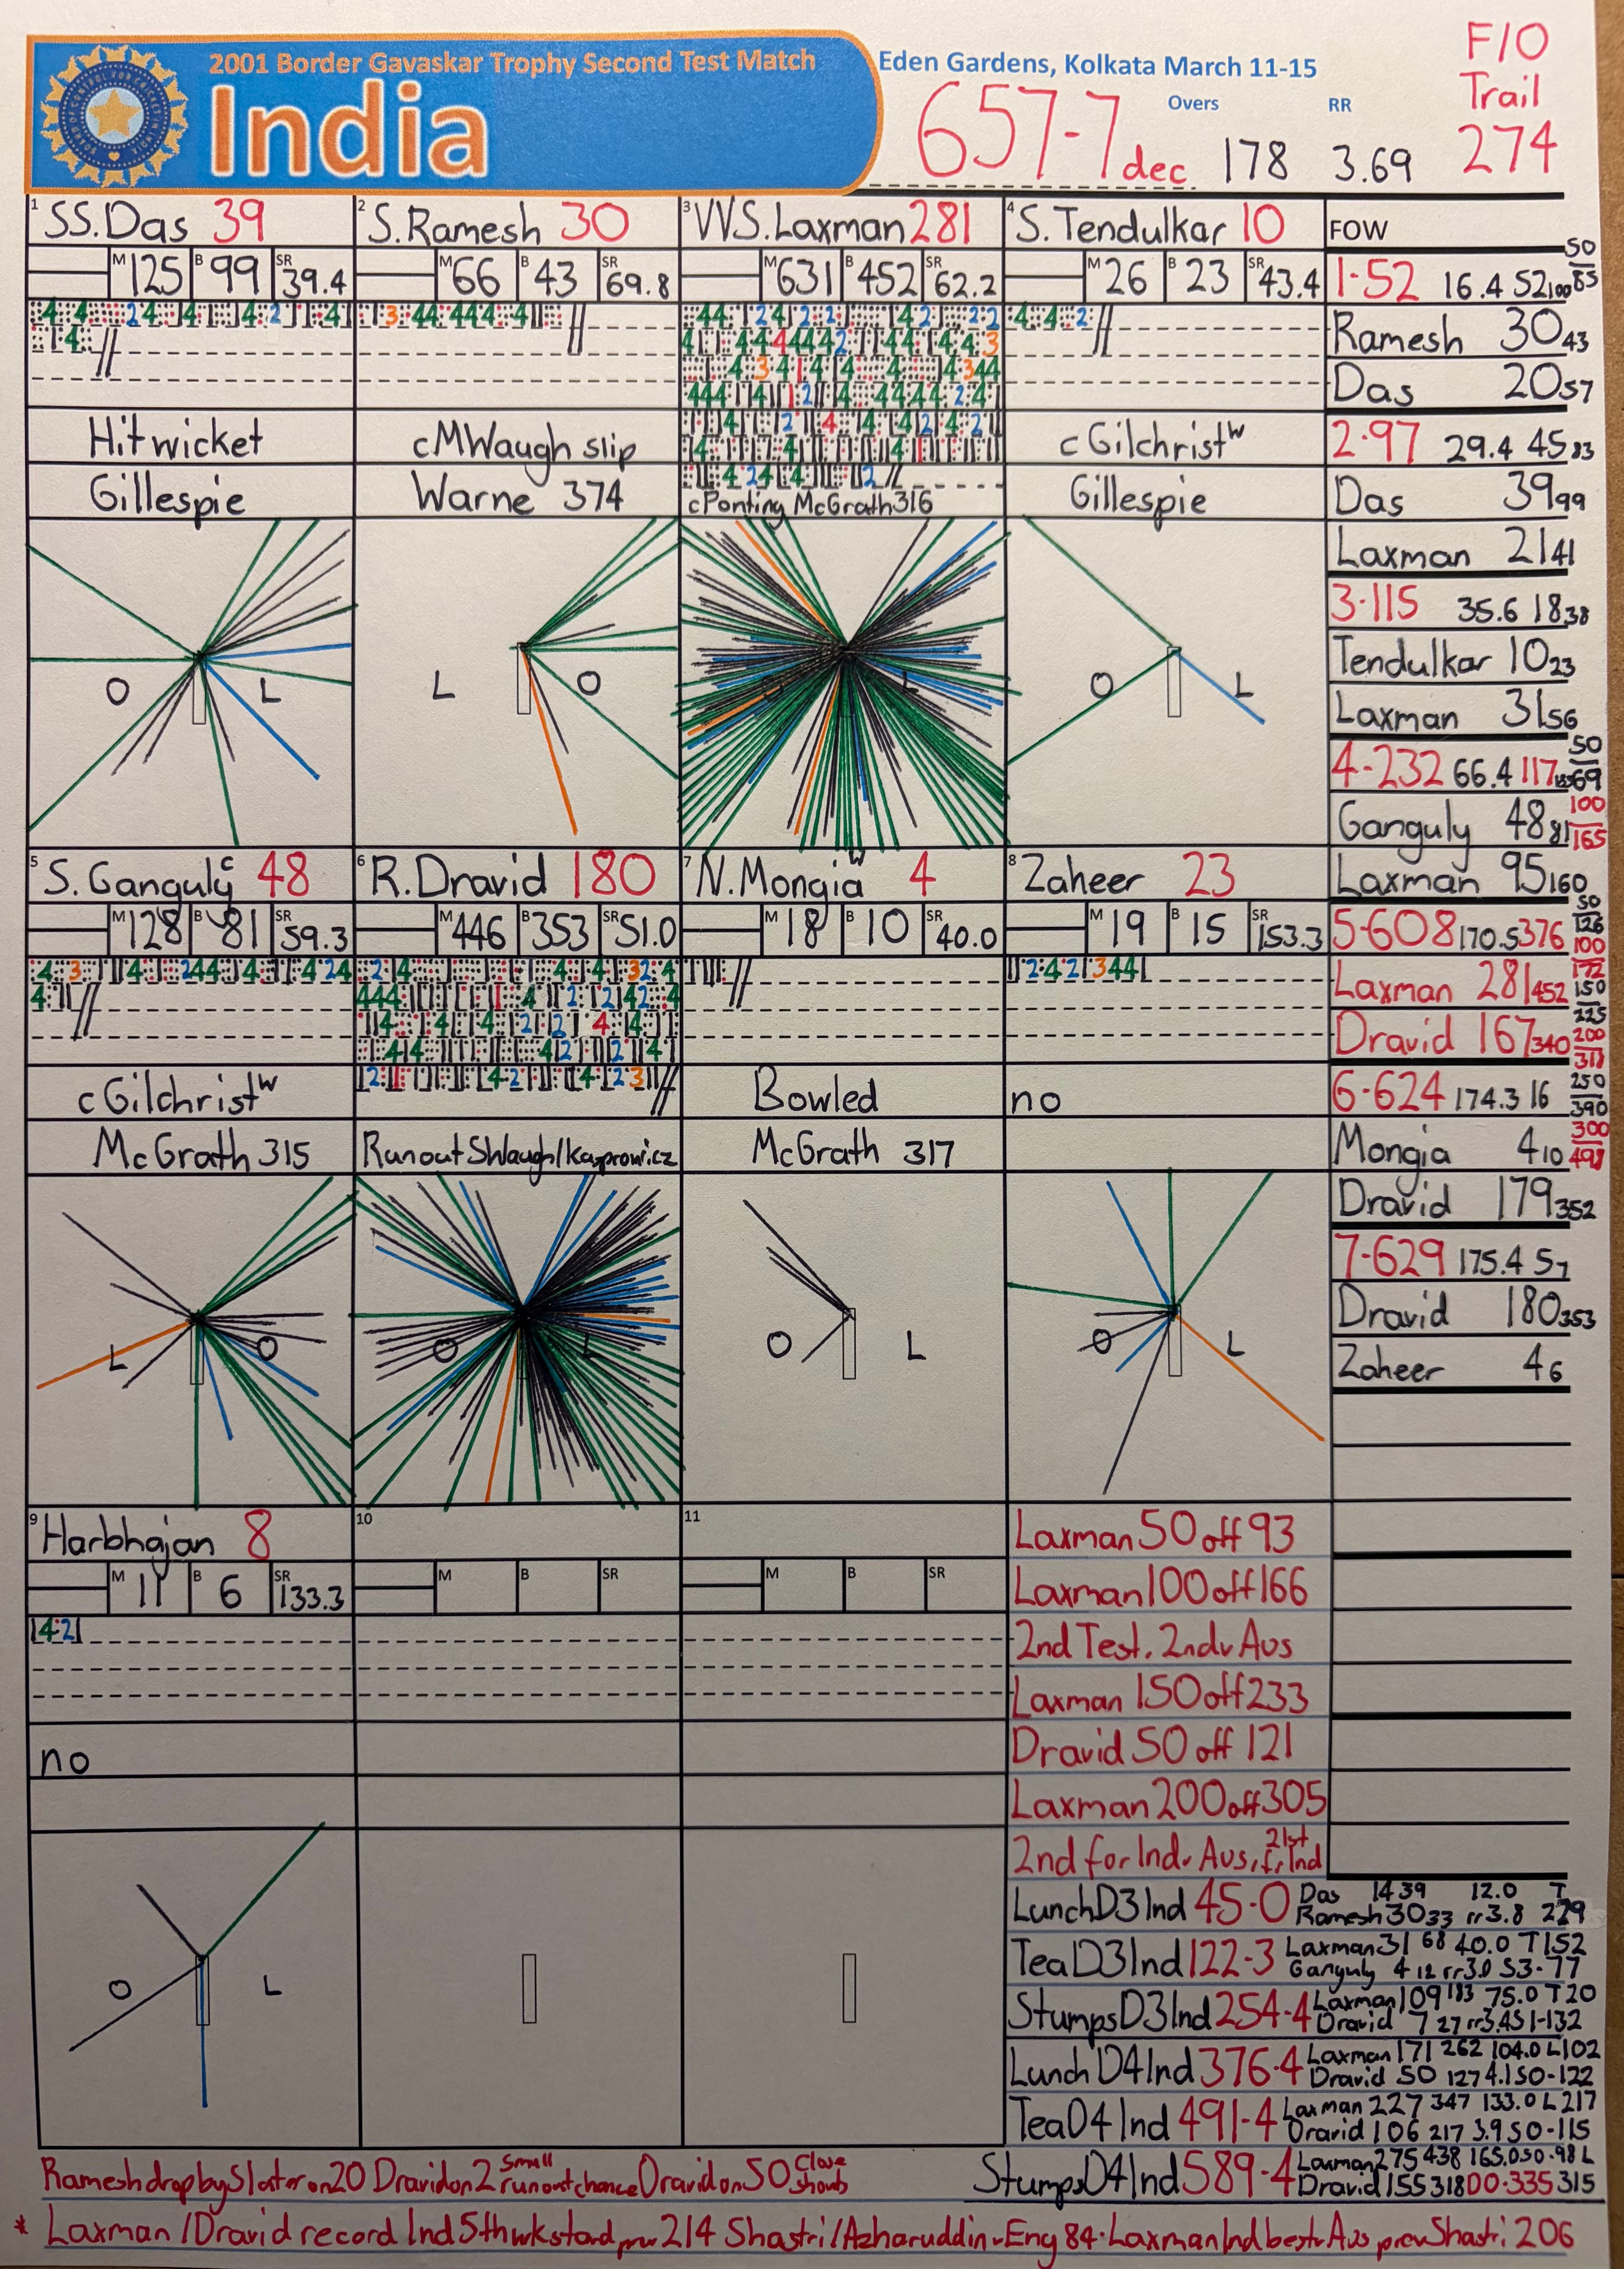 2001 Border Gavaskar Trophy Second Test Match
India
Eden Gardens, Kolkata March 11-15
657-7 dec
Overs
178
RR
3.69
F/O
Trail
274
1 SS.Das 39
M 125 B 99 SR 39.4
Hit wicket
Gillespie
O L
2 S.Ramesh 30
M 66 B 43 SR 69.8
cMWaugh slip
Warne 374
L O
3 VVS.Laxman 281
M 631 B 452 SR 62.2
cPonting McGrath 316
4 S.Tendulkar 10
M 26 B 23 SR 43.4
cGilchrist W
Gillespie
O L
FOW
1-52 16.4 52 100 50 85
Ramesh 30 43
Das 20 57
2-97 29.4 45 83
Das 39 99
Laxman 21 41
3-115 35.6 18 38
Tendulkar 10 23
Laxman 31 56
4-232 66.4 117 50 69
Ganguly 48 81 100 165
Laxman 95 160
5-608 170.5 376 50 126 100 172
Laxman 281 452 150 225
Dravid 167 340 200 311
6-624 174.3 16 250 390
Mongia 4 10 300 498
Dravid 179 352
7-629 175.4 5 7
Dravid 180 353
Zaheer 4 6
5 S.Ganguly c 48
M 128 B 81 SR 59.3
cGilchrist W
McGrath 315
L O
6 R.Dravid 180
M 446 B 353 SR 51.0
Runout SWaugh/Kasprowicz
O L
7 N.Mongia W 4
M 18 B 10 SR 40.0
Bowled
McGrath 317
O L
8 Zaheer 23
M 19 B 15 SR 153.3
no
O L
9 Harbhajan 8
M 11 B 6 SR 133.3
no
O L
10
M B SR
11
M B SR
Laxman 50 off 93
Laxman 100 off 166
2nd Test. 2nd v Aus
Laxman 150 off 233
Dravid 50 off 121
Laxman 200 off 305
2nd for Ind v Aus, 21st fr Ind
Lunch D3 Ind 45-0 Das 14 39 12.0 T
Ramesh 30 33 rr3.8 229
Tea D3 Ind 122-3 Laxman 31 68 40.0 T152
Ganguly 4 12 rr3.0 S3-77
Stumps D3 Ind 254-4 Laxman 109 183 75.0 T20
Dravid 7 27 rr3.4 S1-132
Lunch D4 Ind 376-4 Laxman 171 262 104.0 L102
Dravid 50 127 4.1 S0-122
Tea D4 Ind 491-4 Laxman 227 347 133.0 L217
Dravid 106 217 3.9 S0-115
Stumps D4 Ind 589-4 Laxman 275 438 165.0 S0-98 L
Dravid 155 318 D0-335 315
Ramesh drop by Slater on 20 Dravid on 2 Small runout chance Dravid on 50 Close
* Laxman/Dravid record Ind 5th wk stand prev 214 Shastri/Azharuddin v Eng 84. Laxman Ind best v Aus prev Shastri 206